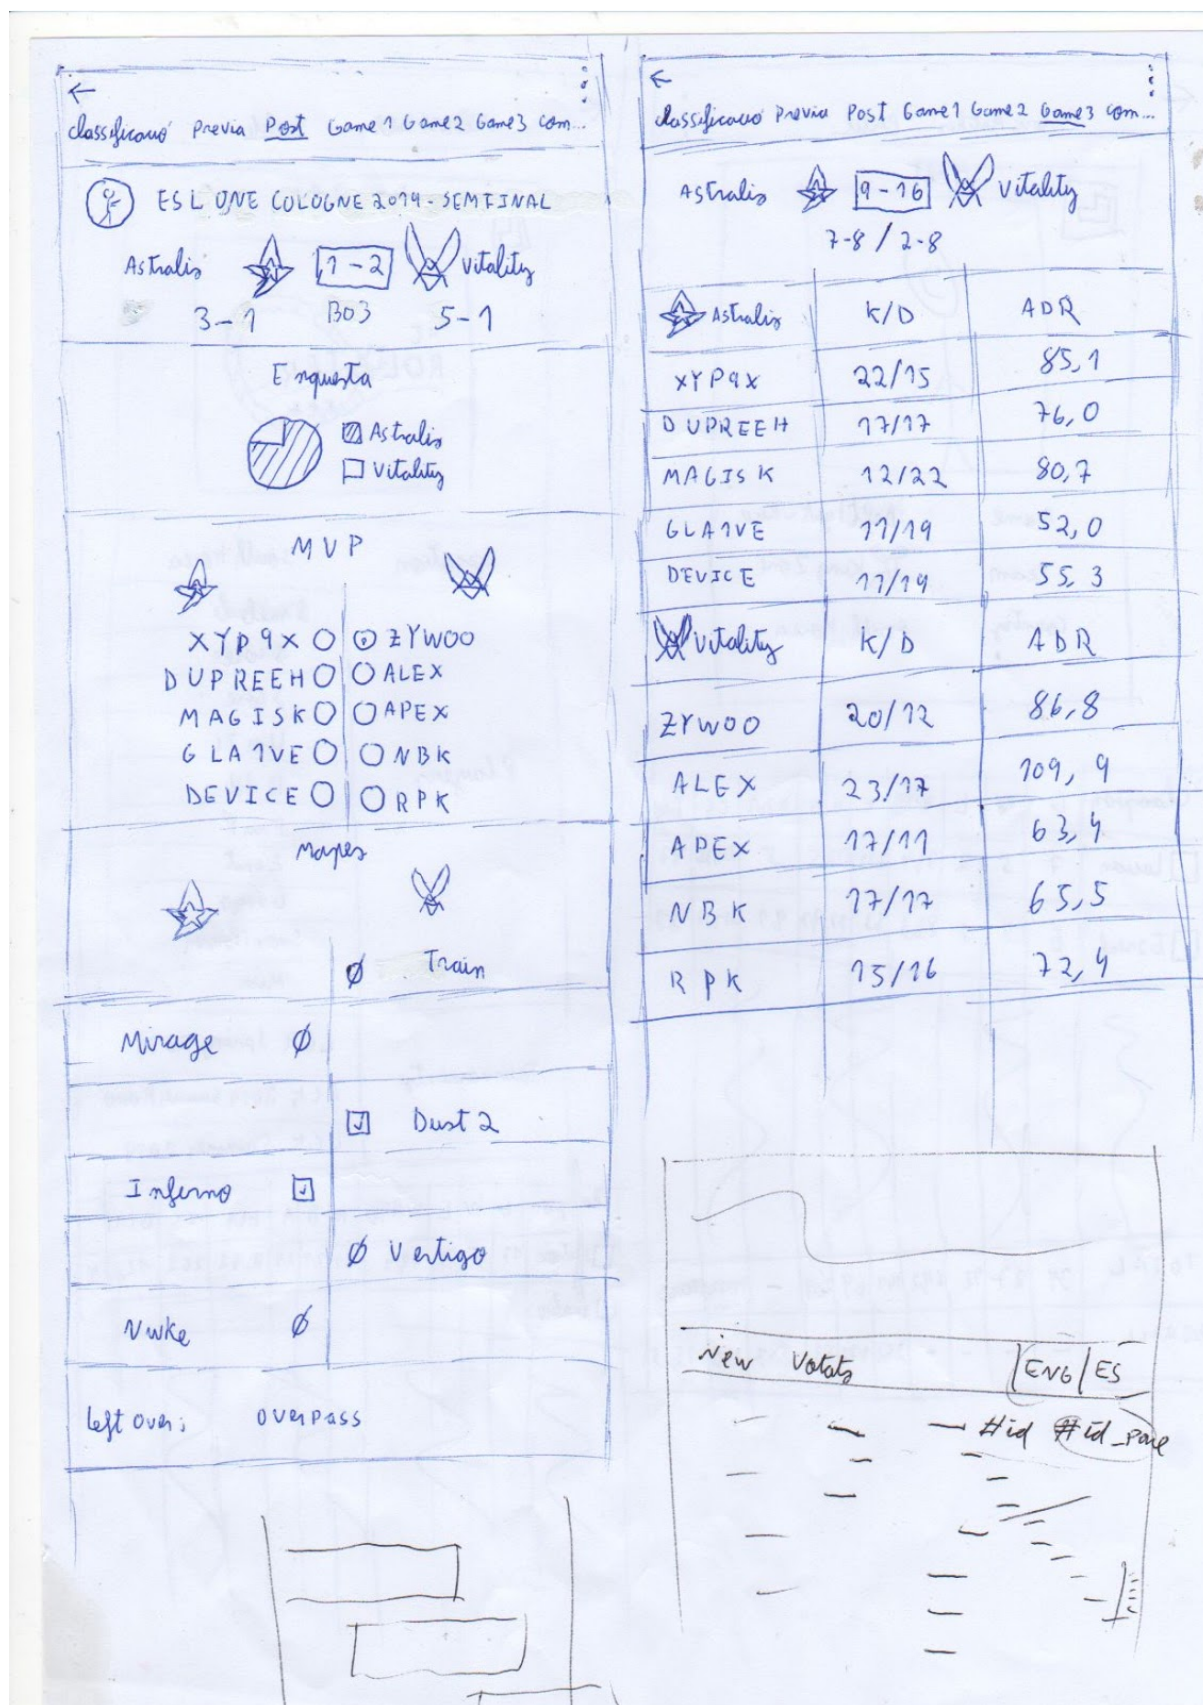 ← 
Classificació Previa Post Game1 Game2 Game3 Com...
ESL ONE COLOGNE 2019 - SEMFINAL
Astralis 1-2 Vitality
3-1 BO3 5-1
Enquesta
Astralis
Vitality
MVP
XYP9X ZYWOO
DUPREEH ALEX
MAGISK APEX
GLA1VE NBK
DEVICE RPK
Mapes
Ø Train
Mirage Ø
Dust 2
Inferno
Ø Vertigo
Nuke Ø
Left over: OVERPASS
←
Classificació Previa Post Game1 Game2 Game3 Com...
Astralis 9-16 Vitality
7-8 / 2-8
Astralis K/D ADR
XYP9X 22/15 85,1
DUPREEH 17/17 76,0
MAGISK 12/22 80,7
GLA1VE 11/19 52,0
DEVICE 11/19 55,3
Vitality K/D ADR
ZYWOO 20/12 86,8
ALEX 23/17 109,9
APEX 17/11 63,4
NBK 17/17 65,5
RPK 15/16 72,4
New Votats |ENG|ES
#id #id_pare